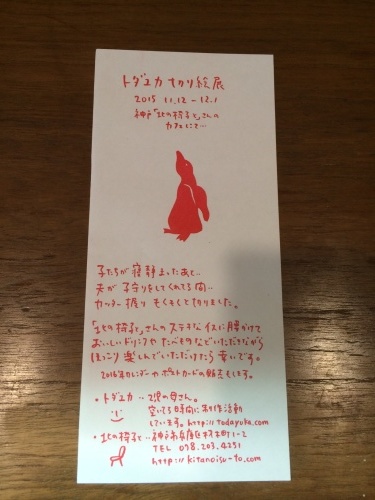 トダユカ 切り絵展
2015 11.12 - 12.1
神戸「北の椅子と」さんの
カフェにて…
子たちが寝静まったあと…
夫が子守りをしてくれてる間…
カッター握り もくもくと切りました。
「北の椅子と」さんの ステキなイスに腰かけて
おいしいドリンクや たべものなどいただきながら
ほっこり 楽しんでいただけたら 幸いです。
2016年カレンダーやポストカードの販売もします。
・トダユカ … 2児の母さん。
空いてる時間に制作活動
しています。http://todayuka.com
・北の椅子と … 神戸市兵庫区材木町1-2
TEL 078.203.4251
http://kitanoisu-to.com